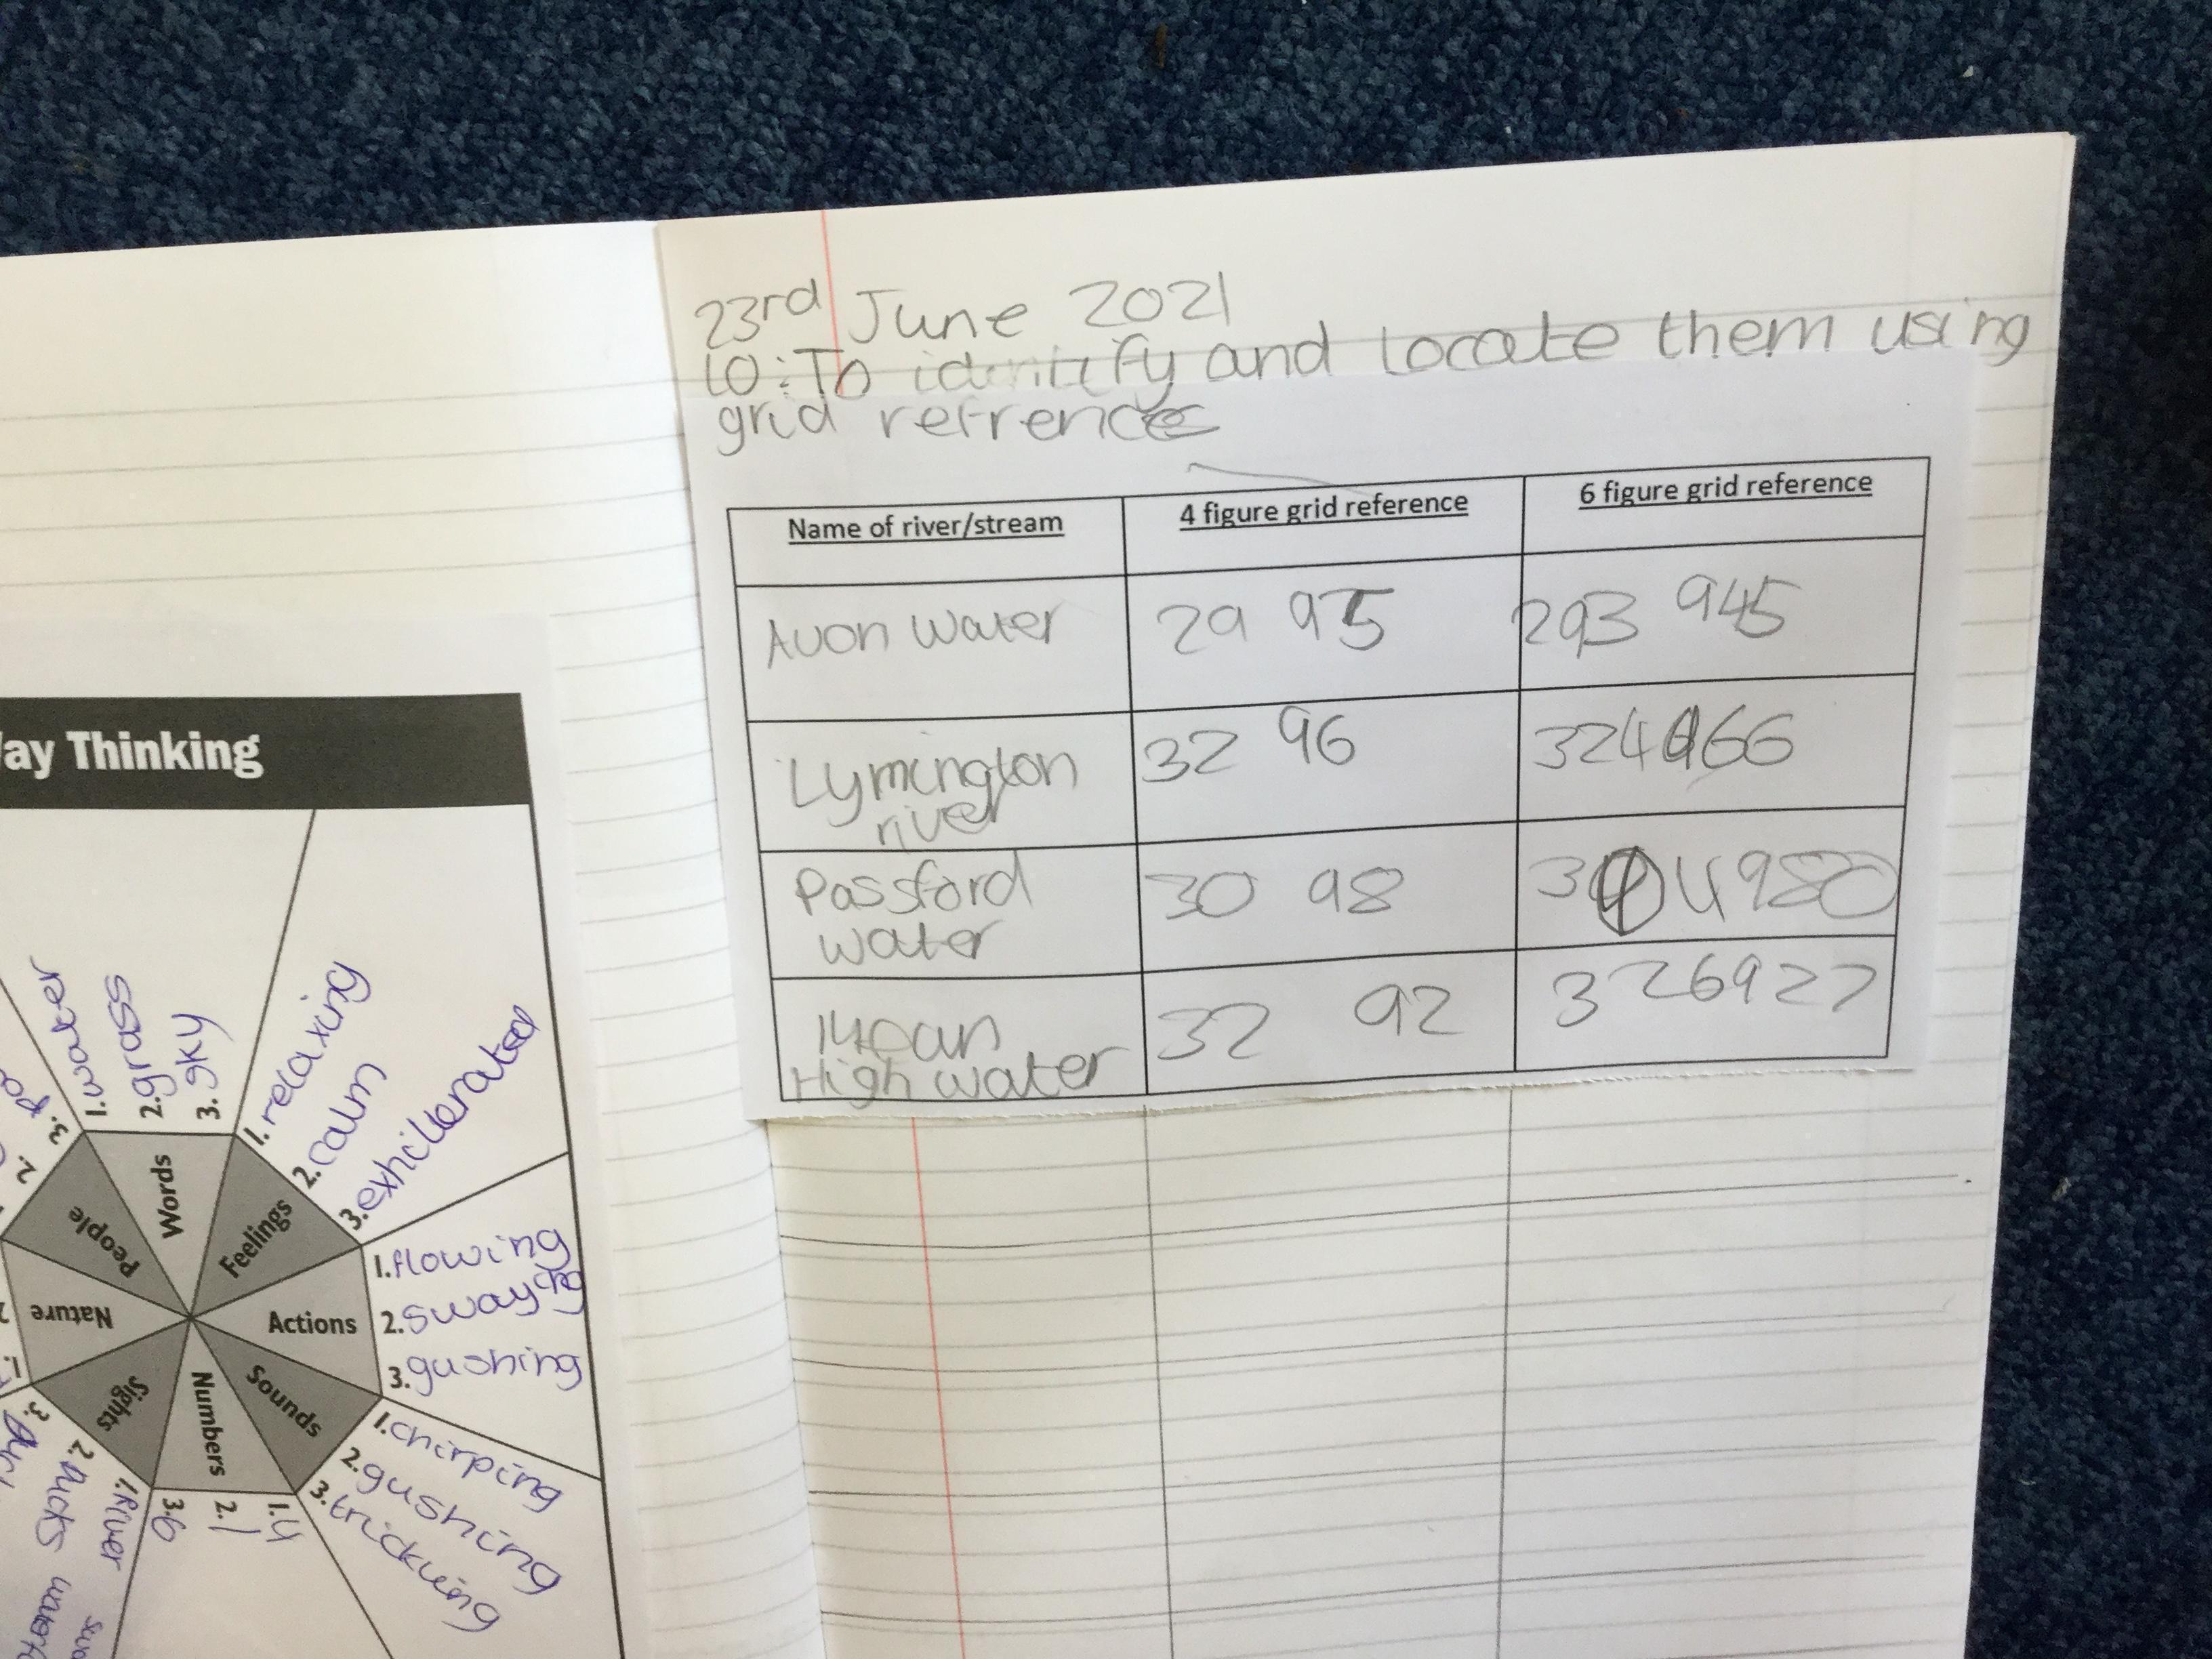 23rd June 2021
LO: To identify and locate them using
grid refrence
Name of river/stream 4 figure grid reference 6 figure grid reference
Avon water 29 95 293 945
Lymington river 32 96 324966
Passford water 30 98 304980
High water 32 92 326927
ay Thinking
Words
1. water
2. grass
3. sky
Feelings
1. relaxing
2. calm
3. exhillerated
Actions
1. flowing
2. swaying
3. gushing
Sounds
1. chirping
2. gushing
3. trickling
Numbers
1. 4
2. 1
3. 6
Sights
1. River
2. ducks
3.
Nature
1.
2
People
2.
3.